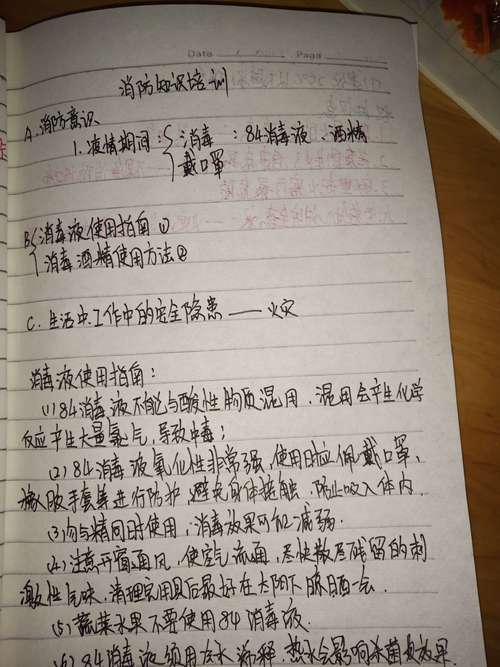 Date Page
消防知识培训
A.消防意识
1.疫情期间:{消毒:84消毒液、酒精
戴口罩
B{消毒液使用指南①
消毒酒精使用方法②
C.生活中工作中的安全隐患——火灾
消毒液使用指南:
(1)84消毒液不能与酸性物质混用,混用会产生化学
反应产生大量氯气,导致中毒;
(2)84消毒液氧化性非常强,使用时应佩戴口罩、
橡胶手套等进行防护,避免身体接触,防止吸入体内.
(3)勿与酒精同时使用,消毒效果可能减弱.
(4)注意开窗通风,使空气流通,尽快散尽残留的刺
激性气味,清理完用具后最好在太阳下晾晒一会.
(5)蔬菜水果不要使用84消毒液.
(6)84消毒液须用冷水稀释,热水会影响杀菌效果